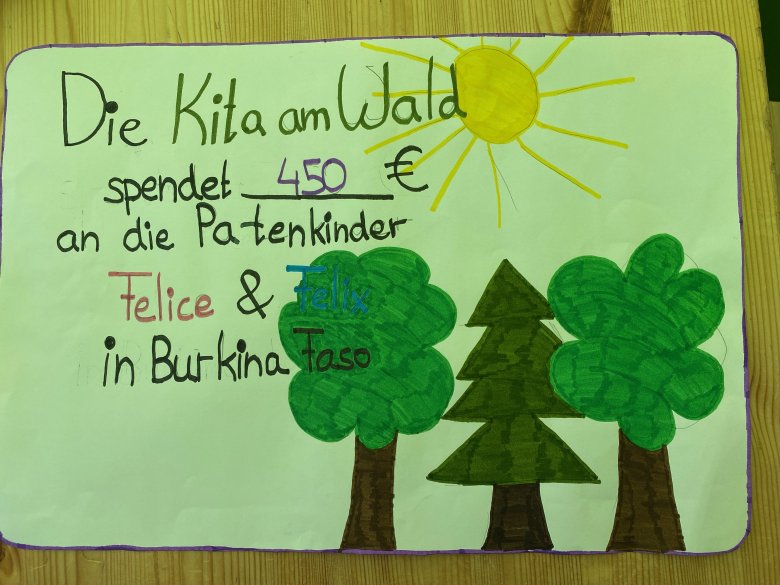 Die Kita am Wald
spendet 450 €
an die Patenkinder
Felice & Felix
in Burkina Faso